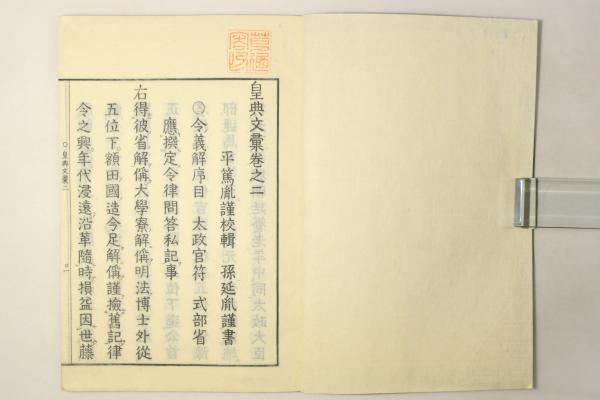 皇典文彙卷之二
平篤胤謹校輯 孫延胤謹書
令義解序目 太政官符 式部省
應撰定令律問答私記事
右得彼省解偁大學寮解偁明法博士外從
五位下額田國造今足解偁謹撿舊記律
令之興年代浸遠沿革隨時損益因世藤
○皇典文彙二